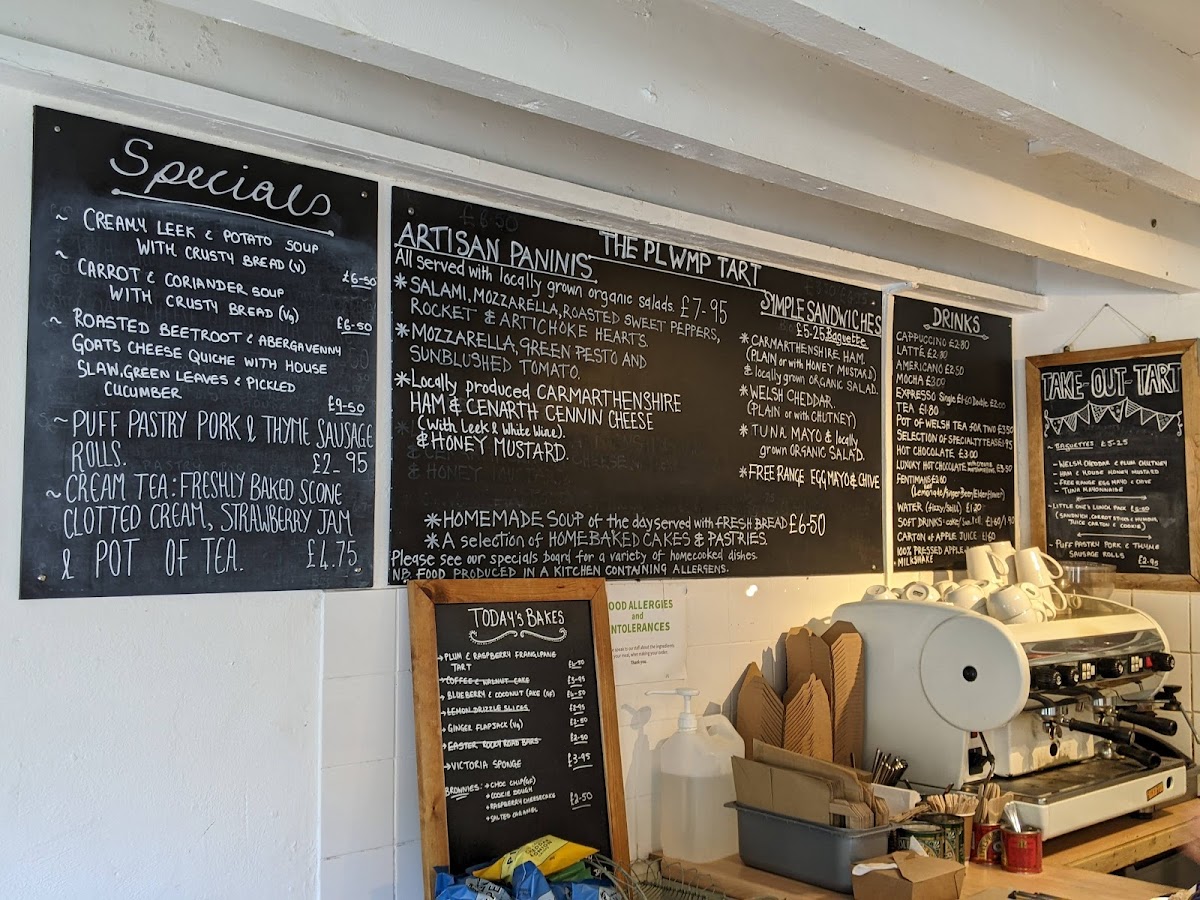 Specials
~ CREAMY LEEK & POTATO SOUP
WITH CRUSTY BREAD (V)
£6-50
~ CARROT & CORIANDER SOUP
WITH CRUSTY BREAD (Vg)
£6-50
~ ROASTED BEETROOT & ABERGAVENNY
GOATS CHEESE QUICHE WITH HOUSE
SLAW, GREEN LEAVES & PICKLED
CUCUMBER
£9-50
~ PUFF PASTRY PORK & THYME SAUSAGE
ROLLS. £2-95
~ CREAM TEA: FRESHLY BAKED SCONE
CLOTTED CREAM, STRAWBERRY JAM
& POT OF TEA. £4.75
THE PLWMP TART
ARTISAN PANINIS
All served with locally grown organic salads. £7-95
* SALAMI, MOZZARELLA, ROASTED SWEET PEPPERS,
ROCKET & ARTICHOKE HEARTS.
* MOZZARELLA, GREEN PESTO AND
SUNBLUSHED TOMATO.
* Locally produced CARMARTHENSHIRE
HAM & CENARTH CENNIN CHEESE
(With Leek & White Wine).
& HONEY MUSTARD.
SIMPLE SANDWICHES
£5-25 Baguette
* CARMARTHENSHIRE HAM.
(PLAIN or with HONEY MUSTARD)
& locally grown ORGANIC SALAD.
* WELSH CHEDDAR.
(PLAIN or with CHUTNEY)
* TUNA MAYO & locally
grown ORGANIC SALAD.
* FREE RANGE EGG MAYO & CHIVE
* HOMEMADE SOUP of the day served with FRESH BREAD £6-50
* A selection of HOMEBAKED CAKES & PASTRIES.
Please see our specials board for a variety of homecooked dishes.
NB. FOOD PRODUCED IN A KITCHEN CONTAINING ALLERGENS.
DRINKS
CAPPUCCINO £2.80
LATTÉ £2.80
AMERICANO £2.50
MOCHA £3.00
EXPRESSO Single £1.60 Double £2.00
TEA £1.80
POT OF WELSH TEA FOR TWO £3.50
SELECTION OF SPECIALTY TEAS £1.95
HOT CHOCOLATE £3.00
LUXURY HOT CHOCOLATE £3.50
FENTIMANS £2.60
(Lemonade/Ginger Beer/Elderflower)
WATER (Fizzy/Still) £1.20
SOFT DRINKS £1.60
CARTON of APPLE JUICE £1.60
100% PRESSED APPLE
MILKSHAKE
TAKE-OUT-TART
~ BAGUETTES £5-25
- WELSH CHEDDAR & PLUM CHUTNEY
- HAM & HOUSE HONEY MUSTARD
- FREE RANGE EGG MAYO & CHIVE
- TUNA MAYONNAISE
~ LITTLE ONE'S LUNCH PACK £6-50
(SANDWICH, CARROT STICKS & HUMOUS,
JUICE CARTON & COOKIE)
~ PUFF PASTRY PORK & THYME
SAUSAGE ROLLS
£2-95
TODAY'S BAKES
PLUM & RASPBERRY FRANGIPANE
TART
COFFEE & WALNUT CAKE £3-95
BLUEBERRY & COCONUT CAKE (GF)
LEMON DRIZZLE SLICES £2-95
GINGER FLAPJACK (Vg) £2-50
EASTER ROCKY ROAD BARS £2-50
VICTORIA SPONGE £3-95
BROWNIES: CHOC CHIP (GF)
COOKIE DOUGH
RASPBERRY CHEESECAKE
SALTED CARAMEL
£2-50
FOOD ALLERGIES
and
INTOLERANCES
Thank you.